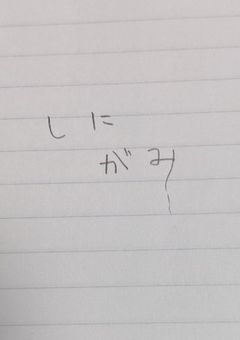 しに
がみ